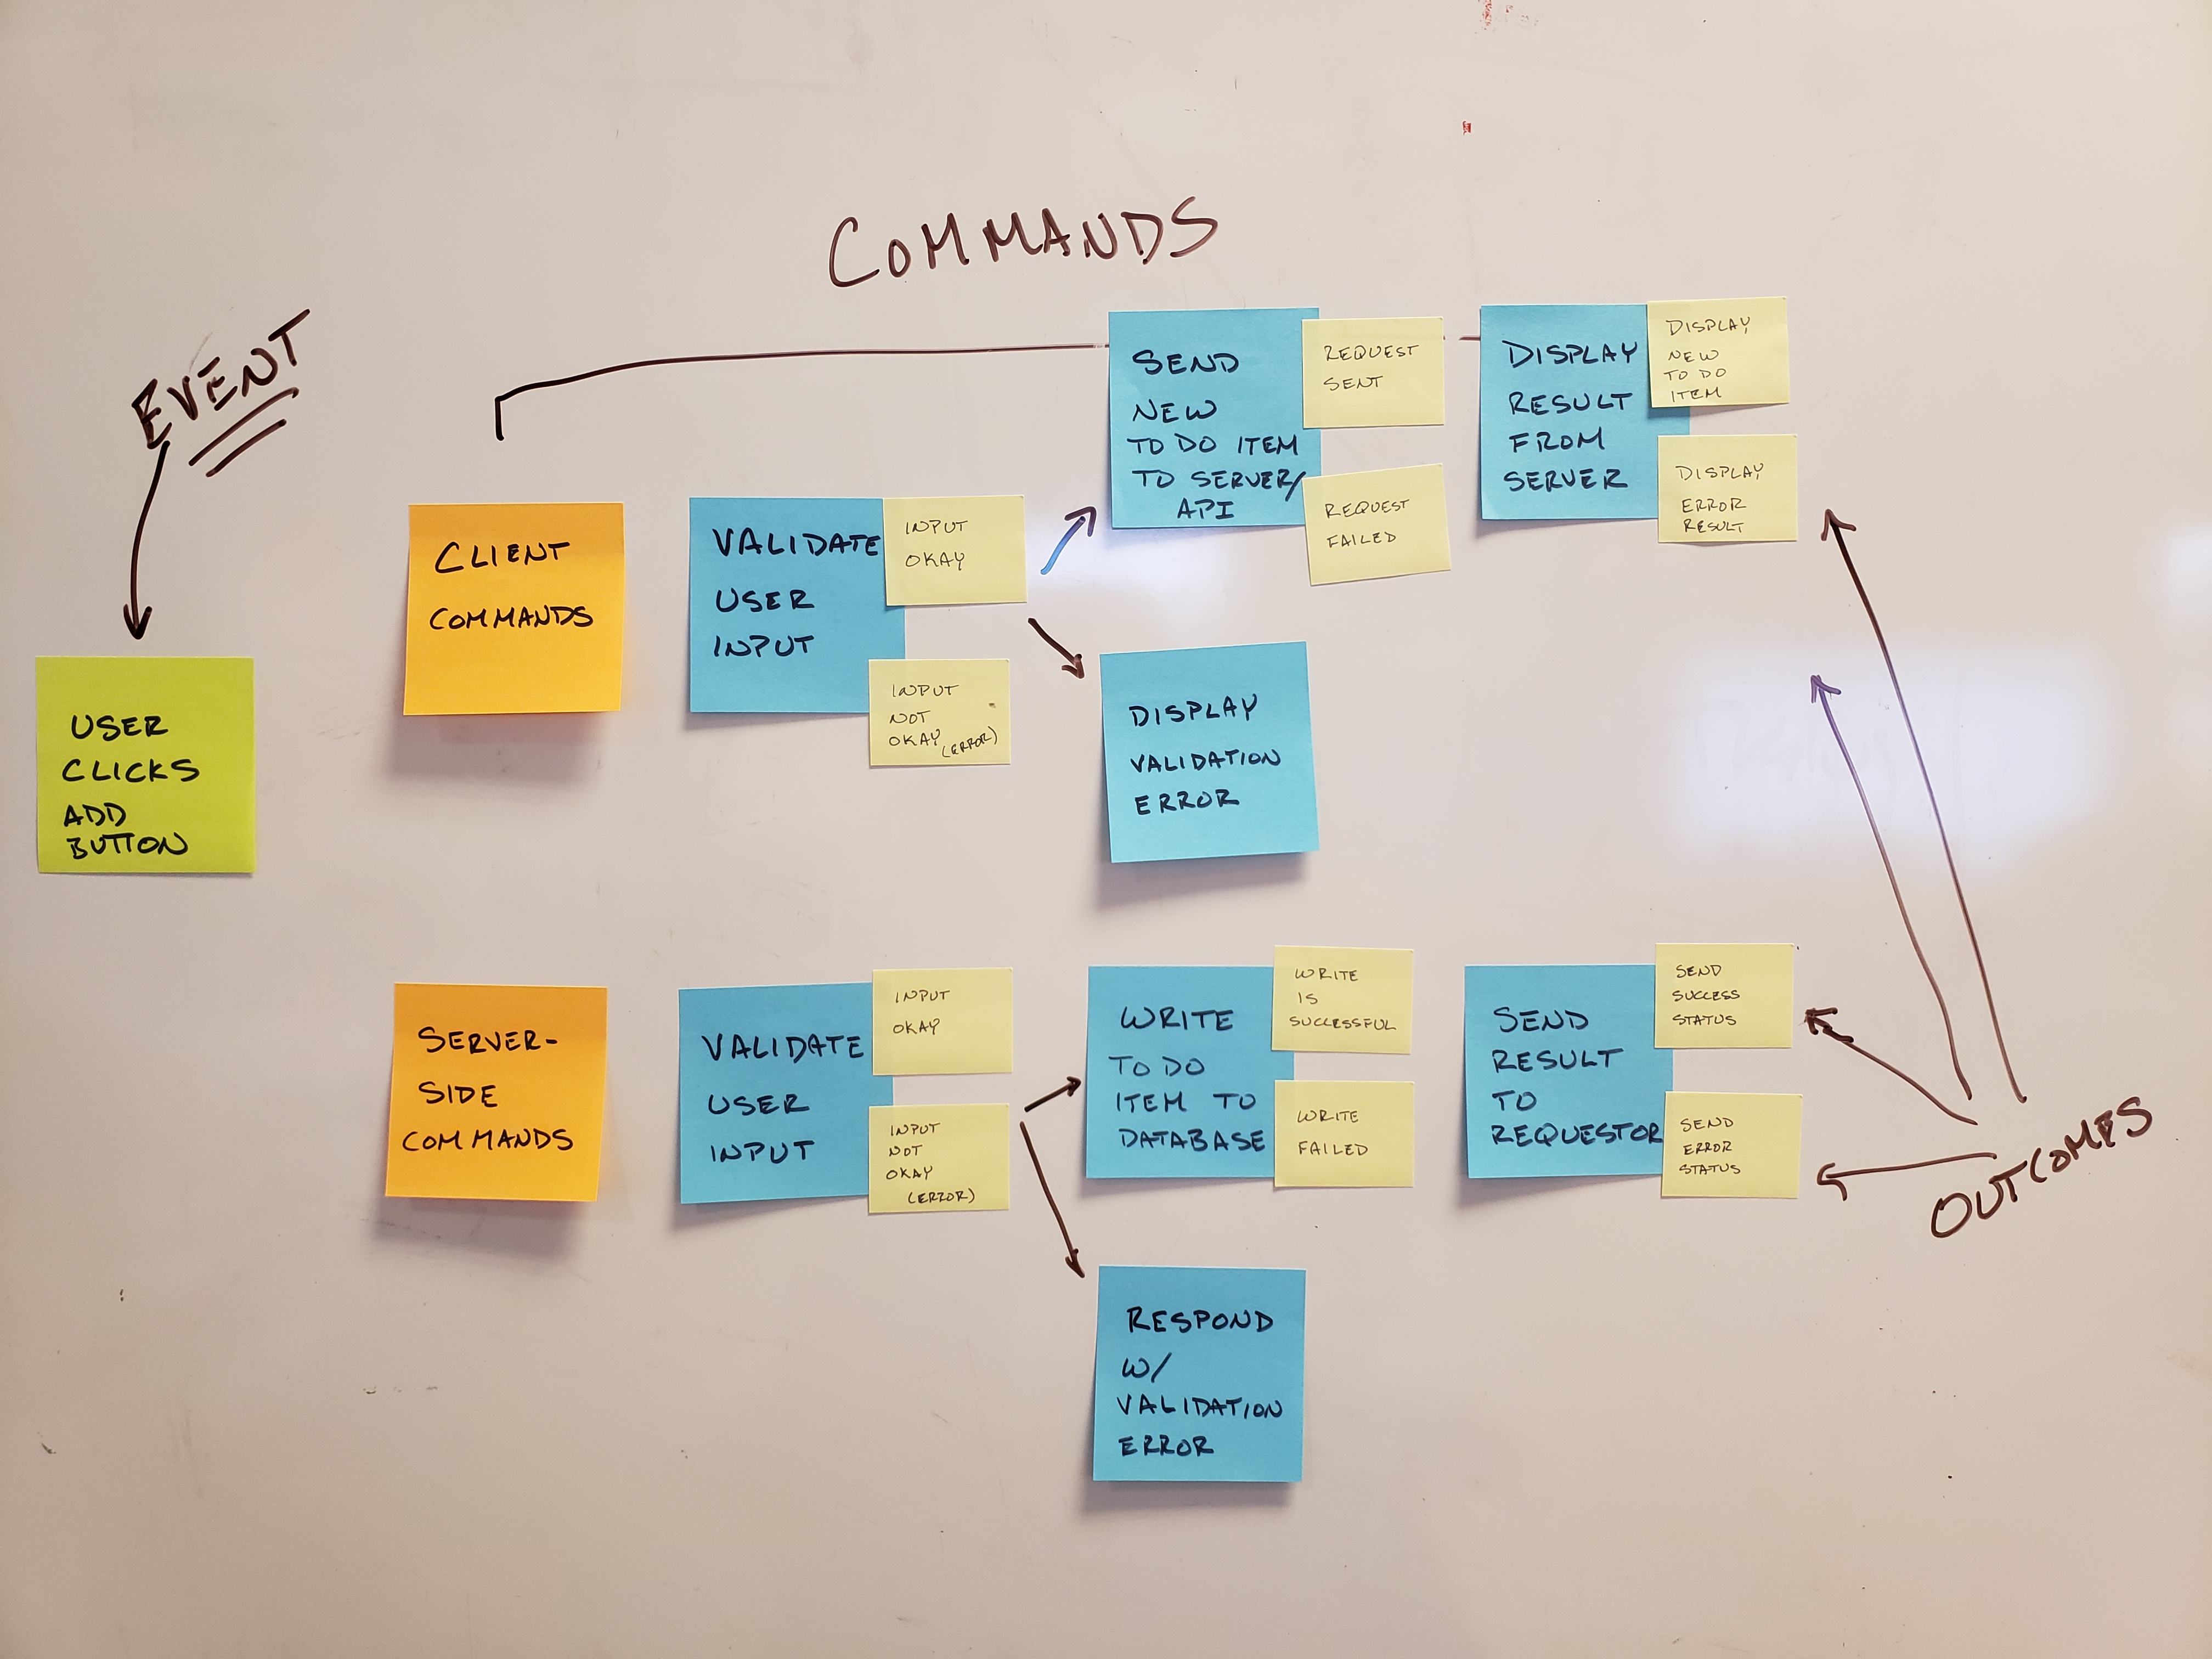 COMMANDS
EVENT
USER
CLICKS
ADD
BUTTON
CLIENT
COMMANDS
VALIDATE
USER
INPUT
INPUT
OKAY
INPUT
NOT
OKAY
(ERROR)
SEND
NEW
TO DO ITEM
TO SERVER/
API
REQUEST
SENT
REQUEST
FAILED
DISPLAY
RESULT
FROM
SERVER
DISPLAY
NEW
TO DO
ITEM
DISPLAY
ERROR
RESULT
DISPLAY
VALIDATION
ERROR
SERVER-
SIDE
COMMANDS
VALIDATE
USER
INPUT
INPUT
OKAY
INPUT
NOT
OKAY
(ERROR)
WRITE
TO DO
ITEM TO
DATABASE
WRITE
IS
SUCCESSFUL
WRITE
FAILED
SEND
RESULT
TO
REQUESTOR
SEND
SUCCESS
STATUS
SEND
ERROR
STATUS
OUTCOMES
RESPOND
W/
VALIDATION
ERROR